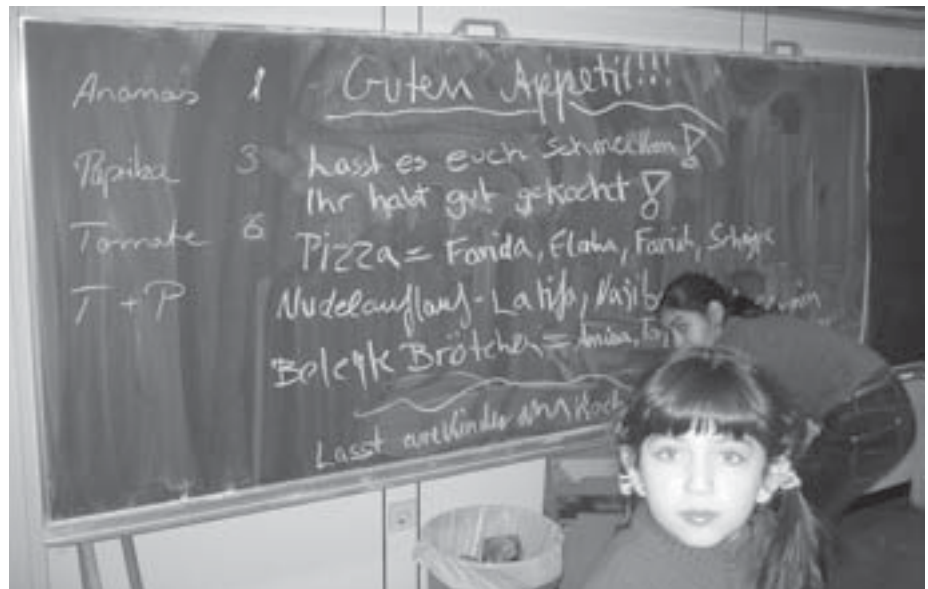 Ananas 1
Paprika 3
Tomate 6
T + P
Guten Appetit!!!
Lasst es euch schmecken!
Ihr habt gut gekocht!
Pizza = Farida, Elaha,
Nudelauflauf - Latifa,
Belegte Brötchen = Amina,
Lasst eure Kinder ans